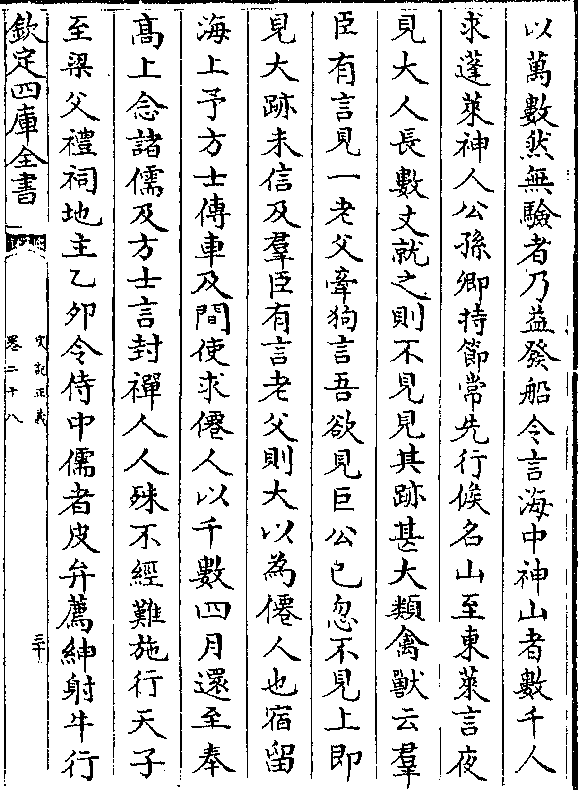 以萬數然無驗者乃益發船令言海中神山者數千人
求蓬萊神人公孫卿持節常先行候名山至東萊言夜
見大人長數丈就之則不見見其跡甚大類禽獸云羣
臣有言見一老父牽狗言吾欲見巨公已忽不見上即
見大跡未信及羣臣有言老父則大以為僊人也宿留
海上予方士傳車及間使求僊人以千數四月還至奉
髙上念諸儒及方士言封禪人人殊不經難施行天子
至梁父禮祠地主乙夘令侍中儒者皮弁薦紳射牛行
欽定四庫全書
史記正義
卷二十八
三十